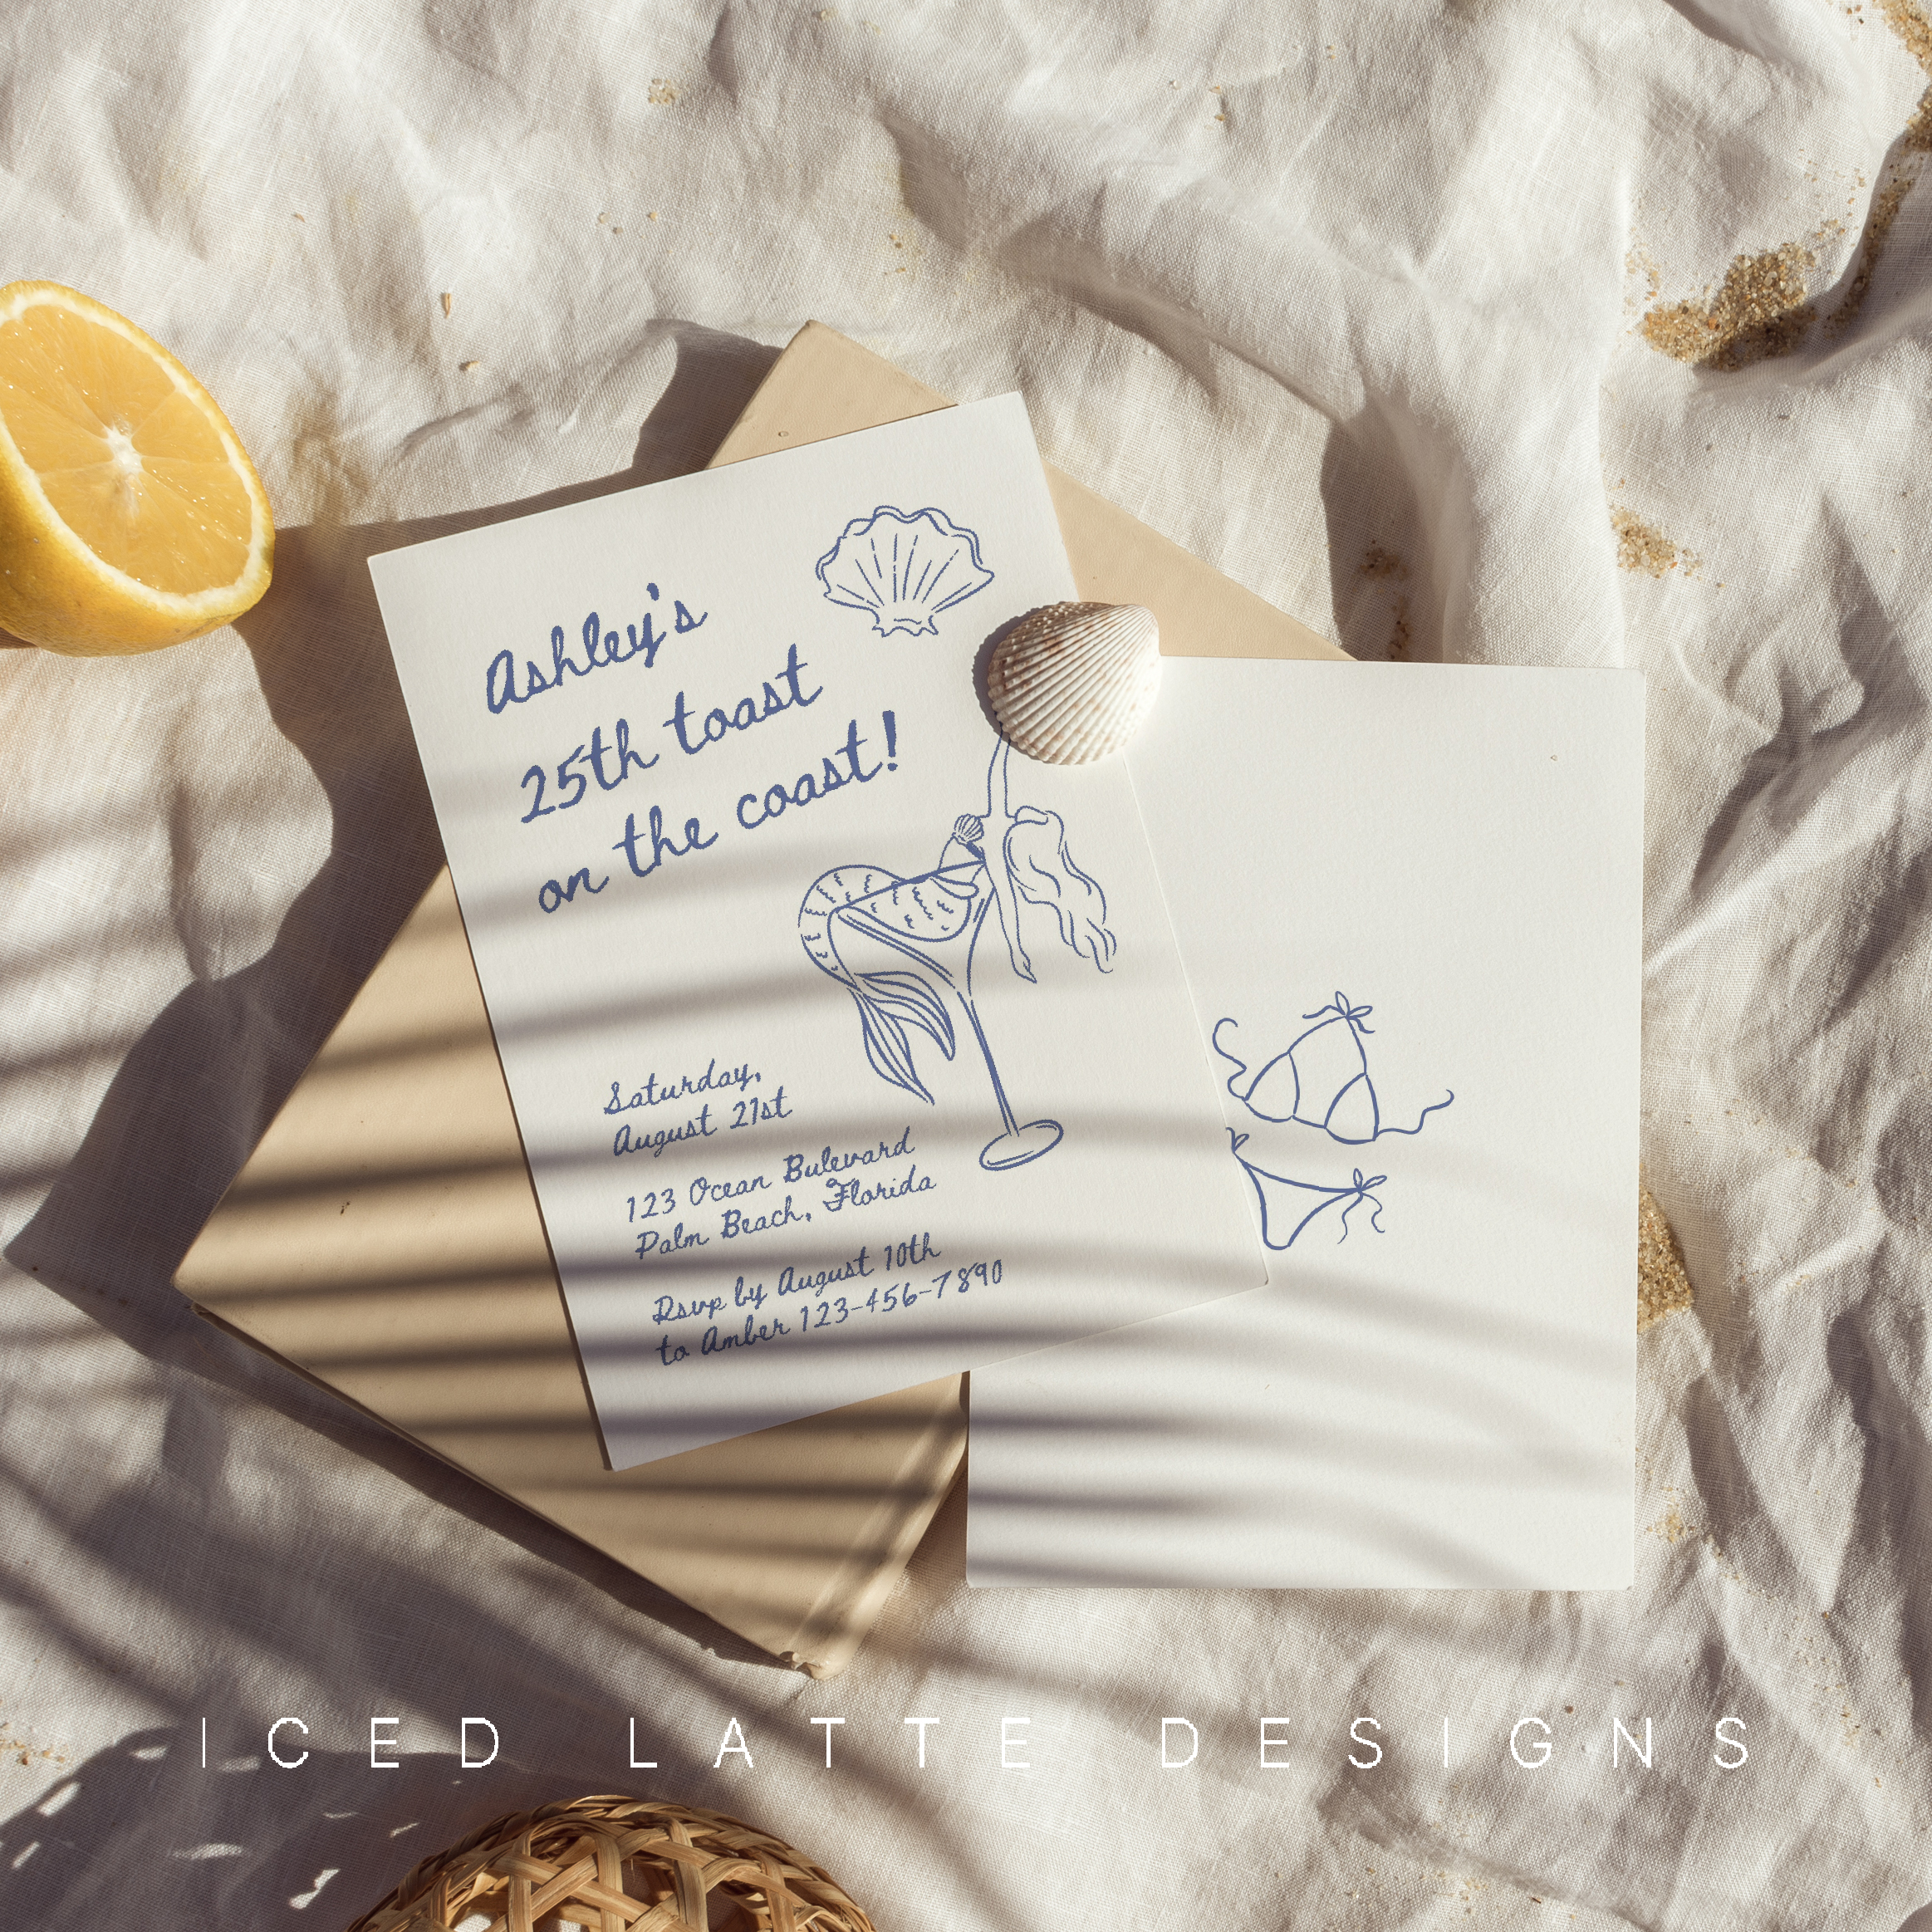 Ashley's
25th toast
on the coast!
Saturday,
August 21st
123 Ocean Bulevard
Palm Beach, Florida
Rsvp by August 10th
to Amber 123-456-7890
ICED LATTE DESIGNS